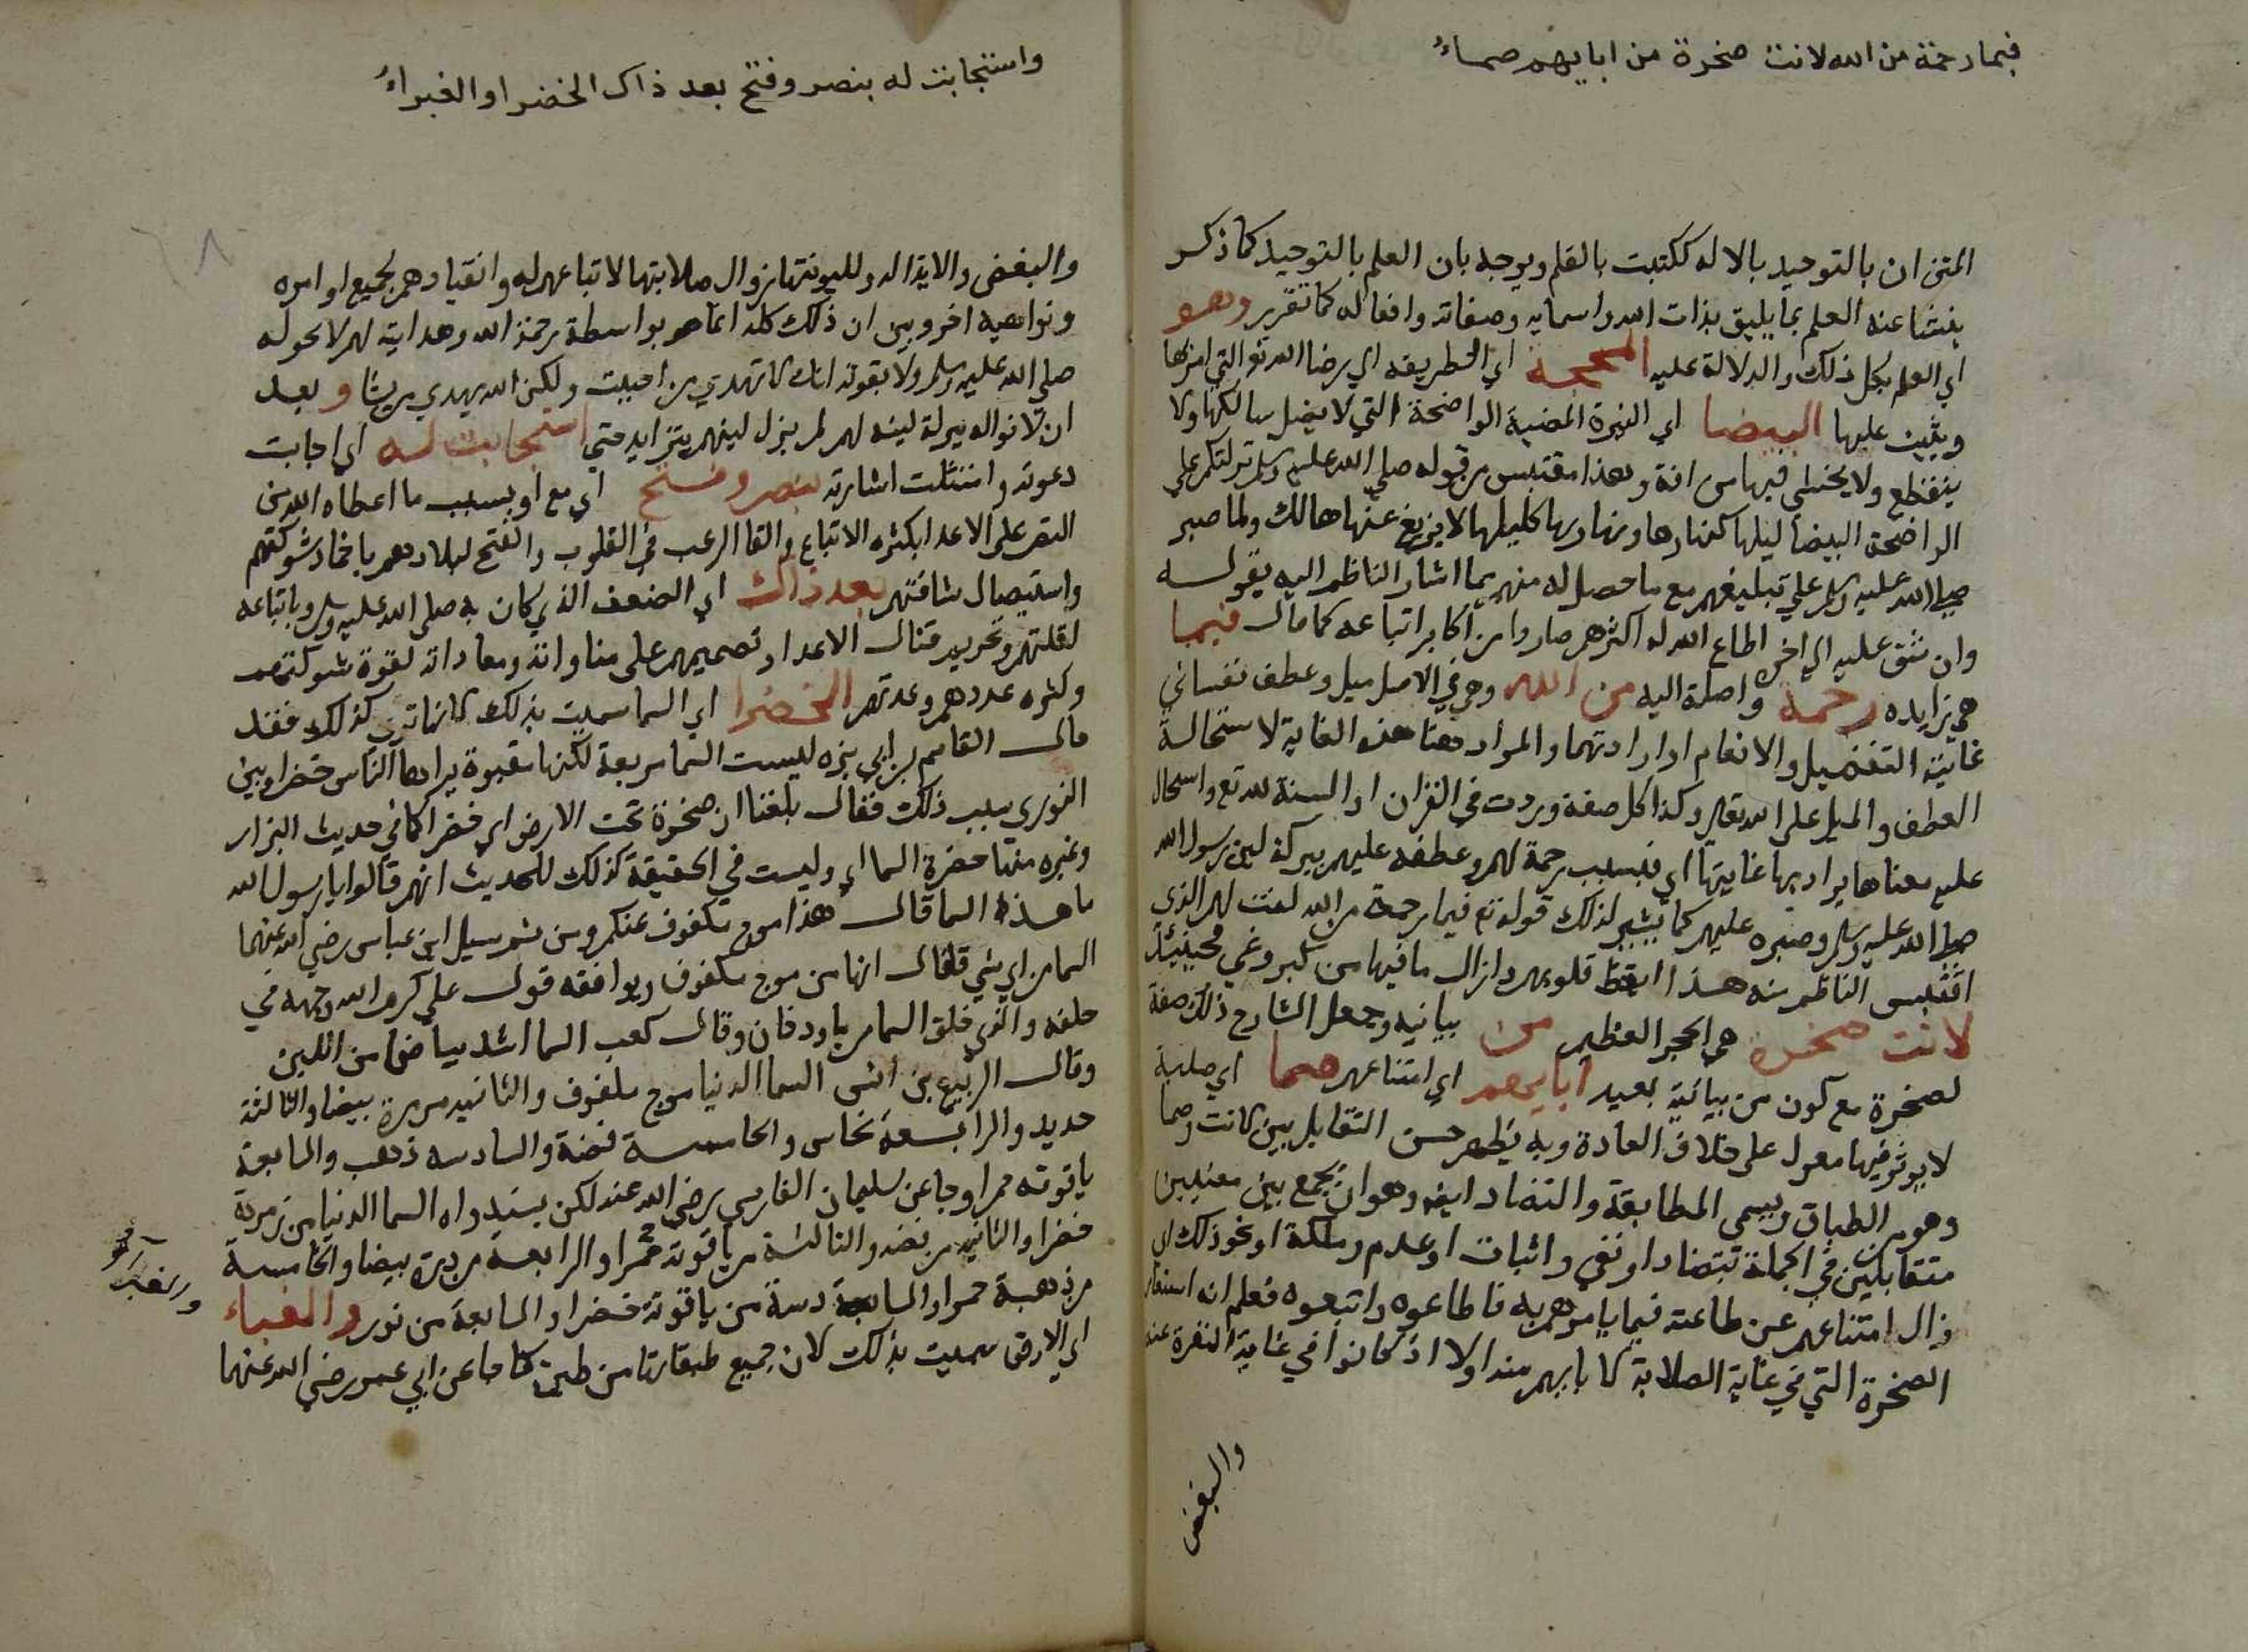 فبما رحمة من الله لانت صخرة من ابايهم صماءُ
المتن ان بالتوحيد بالاله ككتبت بالقلم ويوجه بان العلم بالتوحيد كما ذكر
ينشا عنه العلم بما يليق بذات الله واسمايه وصفاته وافعاله كما تقرر وهو
اي العلم بكل ذلك والدلالة عليه المحجة اي الطريقه اي رضا الله تع التي امر بها
ويثيب عليها البيضا اي النيرة المضيية الواضحة التي لا يضل سالكها ولا
ينقطع ولا يخشى فيها من افة وهذا مقتبس من قوله صلي الله عليه وسلم تركتكم علي
الواضحة البيضا ليلها كنهارها ونهارها كليلها لا يزيغ عنها هالك ولما صبر
صلي الله عليه وسلم علي تبليغهم مع ما حصل له منهم بما اشار الناظم اليه بقوله
وان شق عليه الي اخره اطاع الله له اكثرهم صاروا من اكابر اتباعه كما قال فبما
هي زايده رحمة واصلة اليه من الله وهي في الاصل ميل وعطف نفساني
غايته التفضيل والانعام او ارادتهما والمراد معنا هذه الغاية لاستحالة
العطف والميل على الله تعالى وكذا كل صفة وردت في القران او السنة لله تع واستحال
عليه معناها يراد بها غايتها اي فبسبب رحمة لهم وعطفه عليهم ببركة لين رسول الله
صلى الله عليه وسلم وصبره عليهم كما يشير لذلك قوله تع فبما رحمة من الله لنت لهم الذي
اقتبس الناظم منه هذا ايقظ قلوبهم وازال ما فيها من كبر وغي فحينئذ
لانت صخرة هي الحجر العظيم من بيانيه وجعل الشارح ذلك صفة
لصخرة مع كون من بيانية بعيد ابايهم اي امتناعهم صما اي صلبة
لا يوثر فيها معول على خلاف العادة وبه يظهر حسن التقابل بين لانت وصما
وهو من الطباق ويسمى المطابقة والتضاد ايضا وهو ان يجمع بين معنيين
متقابلين في الجملة تضادا او نفي واثبات او عدم وملكة او نحو ذلك اي
زال امتناعهم عن طاعته فيما يامرهم به فاطاعوه واتبعوه فعلم انه استعار
الصخرة التي في غاية الصلابة لابايهم منه اولا اذ كانوا في غاية النفرة عنه
والبغض
واستجابت له بنصر وفتح بعد ذاك الخضرا والغبراءُ
والبغض والايذا له ولليونتها زوال صلابتها لاتباعهم له وانقيادهم لجميع اوامره
ونواهيه اخر وبين ان ذلك كله انما هو بواسطة رحمة الله وهدايته لهم لا بحوله
صلى الله عليه وسلم ولا بقوته انك لا تهدي من احببت ولكن الله يهدي من يشا و بعد
ان لانوا له ببركة لينه لهم لم يزل لينهم يتزايد حتي استجابت له اي اجابت
دعوته وامتثلت اشارته بنصر وفتح اي مع او بسبب ما اعطاه الله من
النصر على الاعدا بكثره الاتباع والقا الرعب في القلوب والفتح لبلادهم باخماد شوكتهم
واستيصال شافتهم بعد ذاك اي الضعف الذي كان به صلى الله عليه وسلم وباتباعه
لقلتهم وتحريم قتال الاعدا وتصميمهم على مناواته ومعاداته لقوة شوكتهم
وكثره عددهم وعدتهم الخضرا اي السما سميت بذلك لانها ترى كذلك فقد
قال القاسم بن ابي بزه ليست السما مربعة لكنها مقبوة يراها الناس خضرا وبين
الثوري سبب ذلك فقال بلغنا ان صخرة تحت الارض اي خضرا كما في حديث البزار
وغيره منها خضرة السما اي وليست في الحقيقة كذلك للحديث انهم قالوا يا رسول الله
ما هذه السما قال هذا موج مكفوف عنكم ومن ثم سيل ابن عباس رضي الله عنهما
السما من اي شي قال انها من موج مكفوف ويوافقه قول علي كرم الله وجهه في
حلفه والذي خلق السما من ما ودخان وقال كعب السما اشد بياضا من اللبن
وقال الربيع بن انس السما الدنيا موج مكفوف والثانيه مرمرة بيضا والثالثة
حديد والرابعة نحاس والخامسة فضة والسادسه ذهب والسابعة
ياقوته حمرا وجا عن سليمان الفارسي رضي الله عنه لكن بسند واه السما الدنيا من زمردة
خضرا والثانيه من فضه والثالثة من ياقوتة حمرا والرابعه من درة بيضا والخامسة
من ذهبة حمرا والسادسة من ياقوتة خضرا والسابعة من نور والغبراء
اي الارض سميت بذلك لان جميع طبقاتها من طين كما جا عن ابي عمر رضي الله عنهما